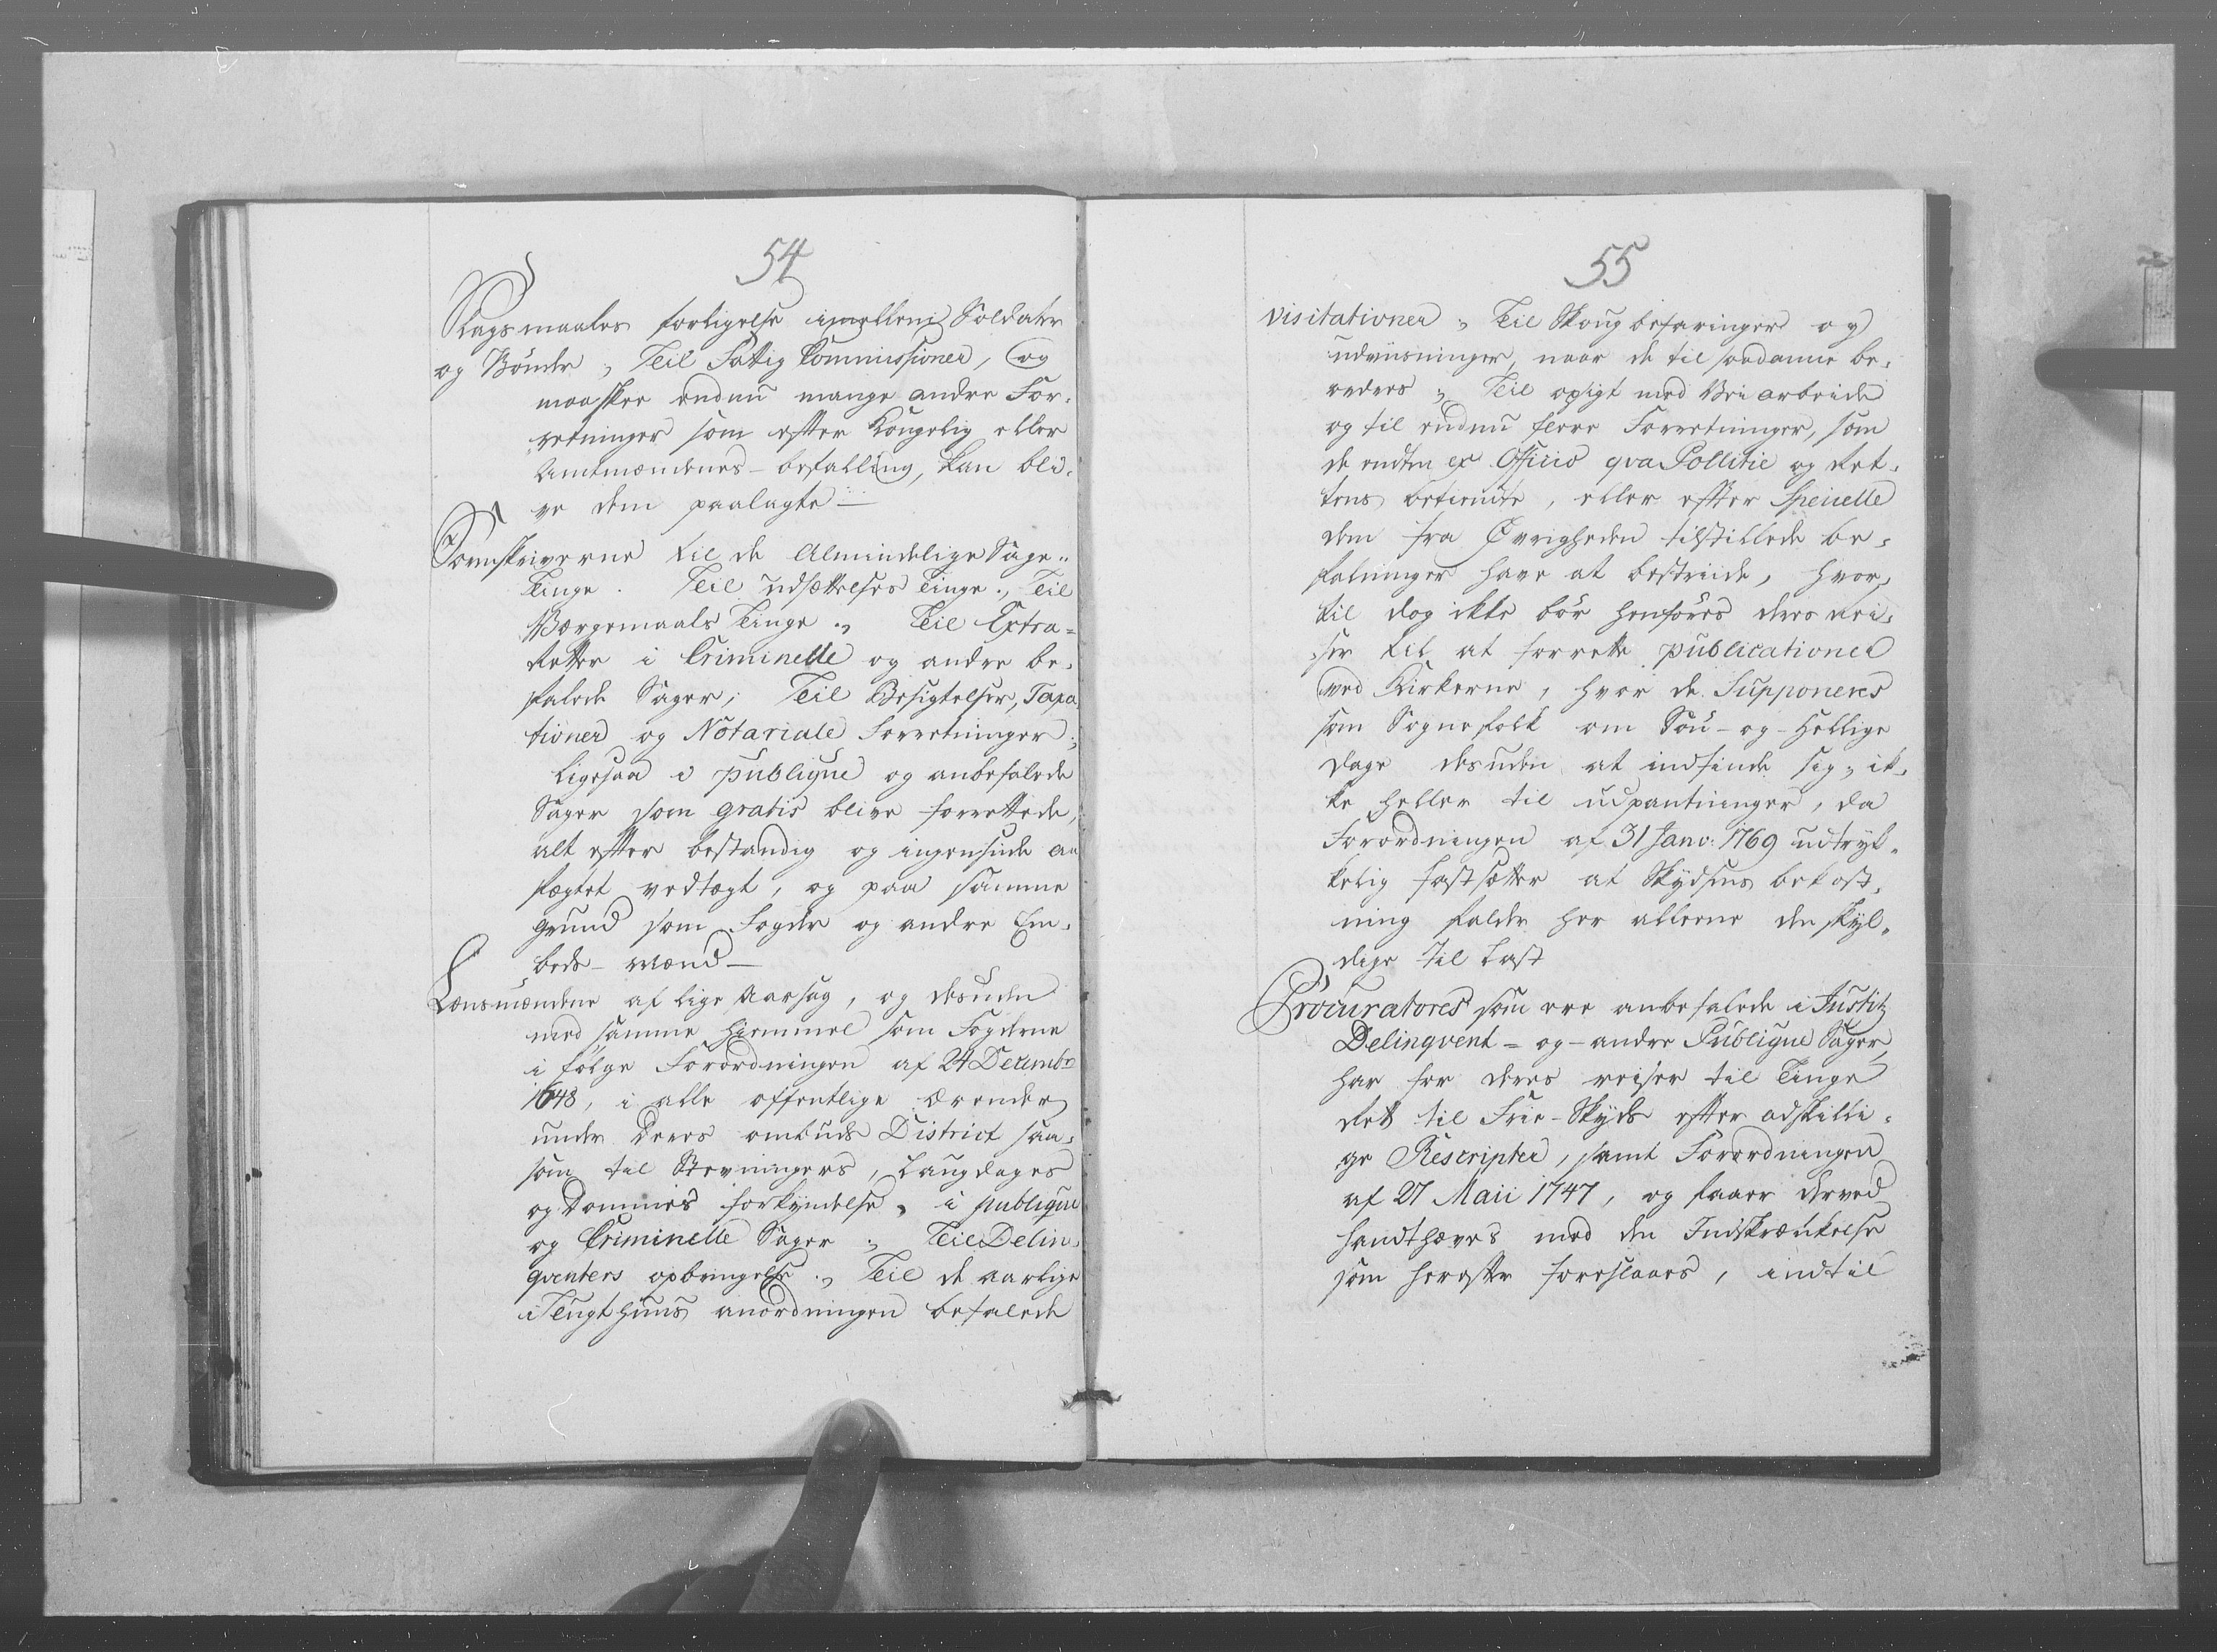 54
Klagemaales forligelse imellem Soldater
og Bønder, Teil Fattig Commissioner, og
maaskee endnu mange andre For-
retninger som efter Kongelig eller
Amtmændenes-befalling, kan bli-
ve dem paalagte —
Sorenskriverne til de Almindelige Sage-
Tinge. Teil udsættelses Tinge., Teil
Værgemaals Tinge., Teil Extra=
Retter i Criminelle og andre be-
falede Sager; Teil Besigtelser, Taxa-
tioner og Notariale Forretninger;
Ligesaa i publique og anbefalede
Sager som gratis blive forrettede,
alt efter bestandig og ingensinde an-
fegtet vedtægt, og paa samme
grund som Fogder og andre Em-
beds-mænd —
Lænsmændene af lige Aarsag, og desuden
med samme hiemmel som Fogderne
i følge Forordningen af 24 Decembr
1648, i alle offentlige Ærender
under deres ombuds District saa-
som til Stevningers, Laugdages
og Dommes forkyndelse, i publique
og Criminelle Sager, Teil Delin-
qventers opbringelse., Teil de aarlige
i Tugthuus anordningen befalede
55
visitationer, Teil Skougbefaringer og
udviisninger, naar de til saadanne be-
ordres, Teil opsigt med Vei arbeide
og til endnu flere Forretninger, som
de endten ex Officio qva Pollitie og Ret-
tens betiente, eller efter Specielle
dem fra Øvrigheden tilstillede be-
falninger have at bestriide, hvor-
til dog ikke bør henføres deres rei-
ser til at forrette publicationer
ved Kirkerne, hvor de Supponeres
som Sognefolk om Søn-og-Hellige
dage desuden at indfinde sig, ik-
ke heller til udpantninger, da
Forordningen af 31 Janv: 1769 udtryk-
kelig fastsætter at Skydsens bekost-
ning falder her alleene den skyl-
dige til Last
Procuratores som ere anbefalede i Justitz
Delinqvent-og-andre Publique Sager,
har for deres reiser til Tinge
Ret til Frie-Skyds efter adskilli-
ge Rescripter, samt Forordningen
af 27 Maii 1747, og faaer derved
handthæves med den Indskrænkelse
som herefter foreslaaes, indtil